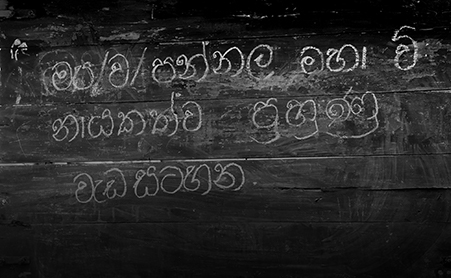 මප/ව/පන්නල මහා වි
නායකත්ව පුහුණු
වැඩසටහන